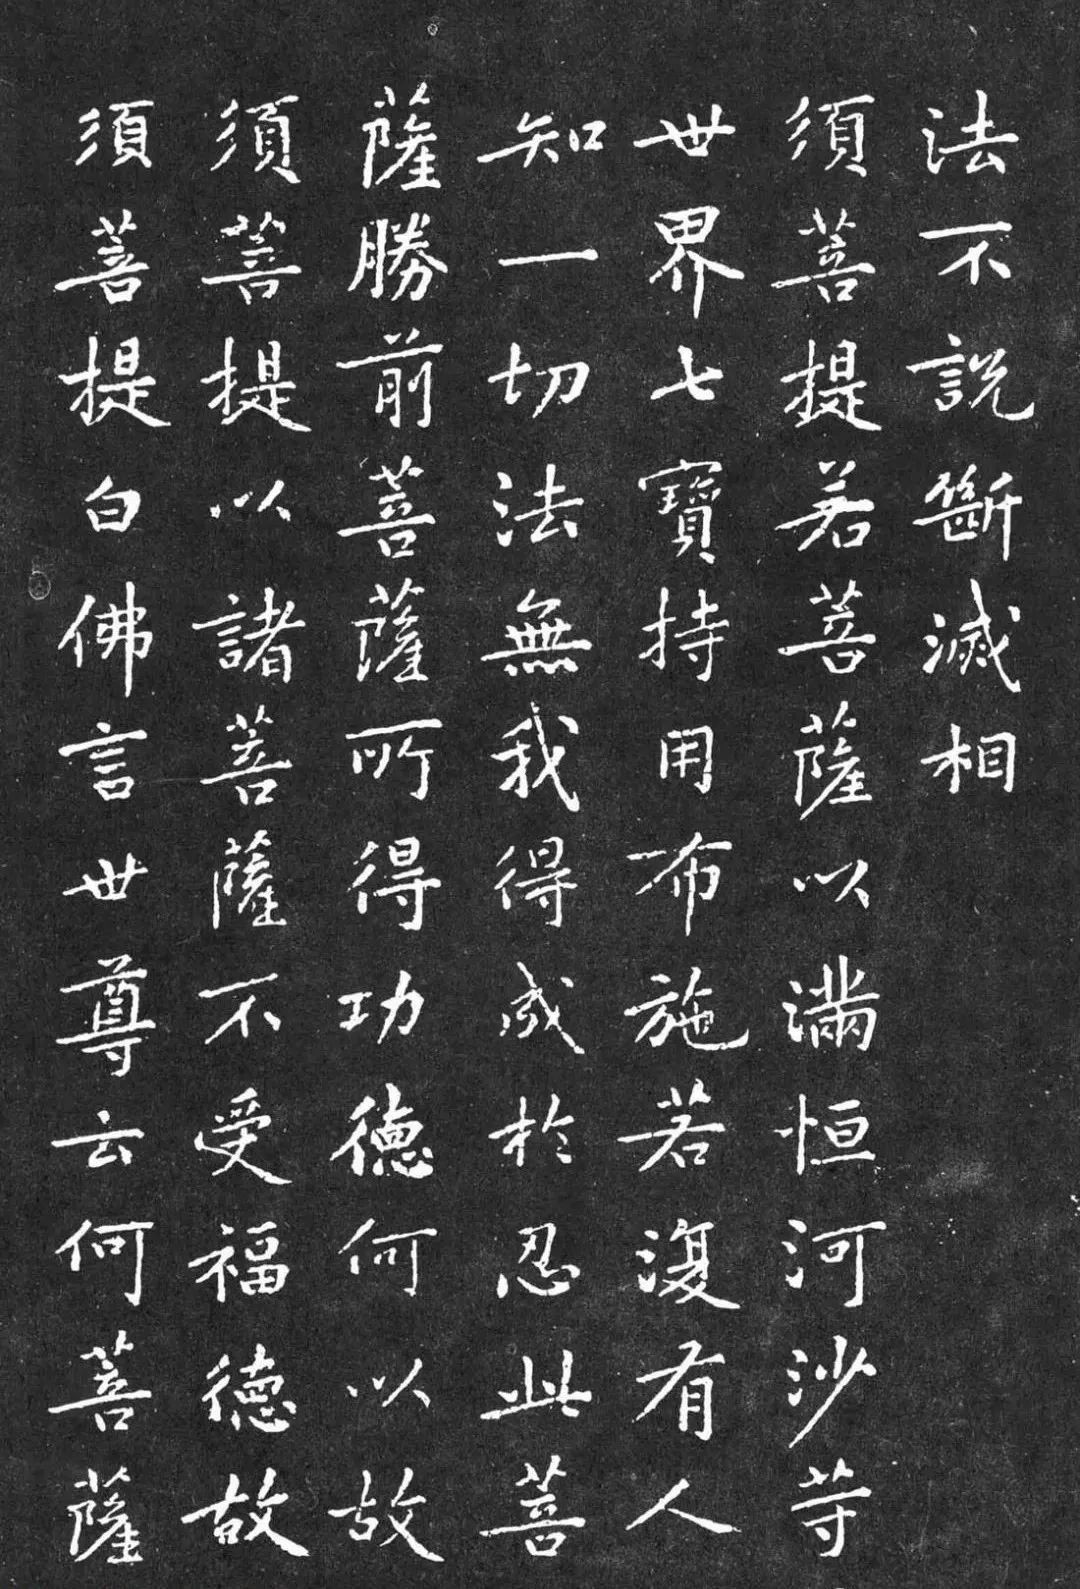 法不說斷滅相
須菩提若菩薩以滿恒河沙等
世界七寶持用布施若復有人
知一切法無我得成於忍此菩
薩勝前菩薩所得功德何以故
須菩提以諸菩薩不受福德故
須菩提白佛言世尊云何菩薩